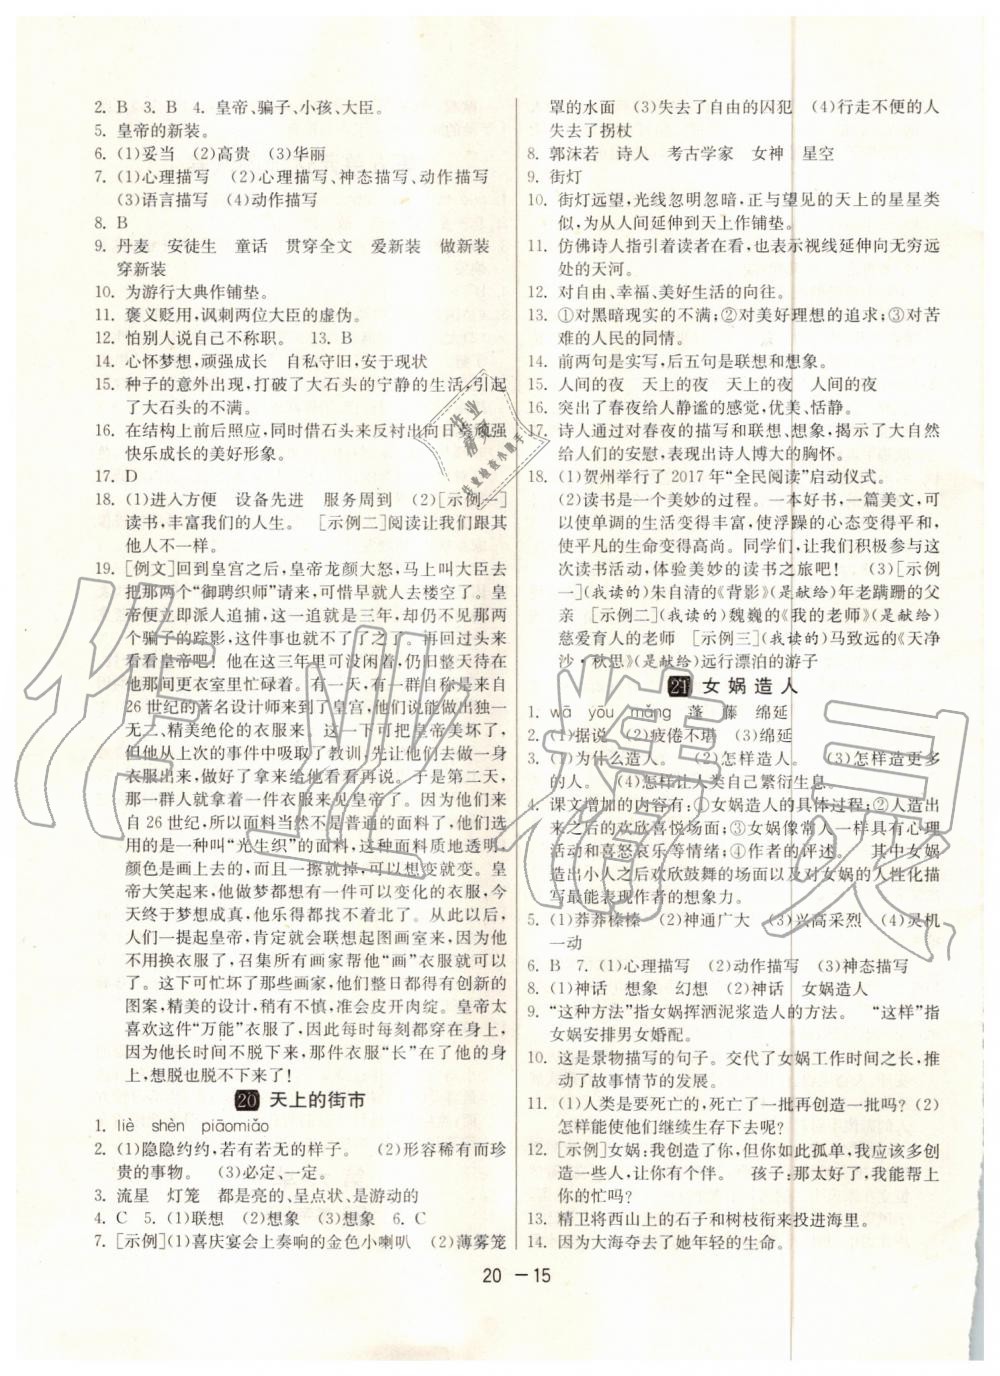 2. B 3. B 4. 皇帝、骗子、小孩、大臣。
5. 皇帝的新装。
6. (1)妥当 (2)高贵 (3)华丽
7. (1)心理描写 (2)心理描写、神态描写、动作描写
(3)语言描写 (4)动作描写
8. B
9. 丹麦 安徒生 童话 贯穿全文 爱新装 做新装
穿新装
10. 为游行大典作铺垫。
11. 褒义贬用,讽刺两位大臣的虚伪。
12. 怕别人说自己不称职。 13. B
14. 心怀梦想,顽强成长 自私守旧,安于现状
15. 种子的意外出现,打破了大石头的宁静的生活,引起
了大石头的不满。
16. 在结构上前后照应,同时借石头来反衬出向日葵顽强
快乐成长的美好形象。
17. D
18. (1)进入方便 设备先进 服务周到 (2)[示例一]
读书,丰富我们的人生。 [示例二]阅读让我们跟其
他人不一样。
19. [例文]回到皇宫之后,皇帝龙颜大怒,马上叫大臣去
把那两个“御聘织师”请来,可惜早就人去楼空了。皇
帝便立即派人追捕,这一追就是三年,却仍不见那两
个骗子的踪影,这件事也就不了了之了。再回过头来
看看皇帝吧!他在这三年里可没闲着,仍旧整天待在
他那间更衣室里忙碌着。有一天,有一群自称来自
26世纪的著名设计师来到了皇宫,他们说能做出独一
无二、精美绝伦的衣服来。这一下可把皇帝美坏了,
但他从上次的事件中吸取了教训,先让他们去做一身
衣服出来,做好了拿来给他看看再说。于是第二天,
那一群人就拿着一件衣服来见皇帝了。因为他们来
自26世纪,所以面料当然不是普通的面料了,他们选
用的是一种叫“光生织”的面料,这种面料质地透明,
颜色是由自己而定,而且,只要你想,可以想变就变。皇
帝大笑起来,他做梦都想有一件可以变化的衣服,今
天终于梦想成真,他乐得都找不着北了。从此以后,
人们一提起皇帝,肯定就会联想起图画室来,因为他
不用换衣服了,召集所有画家帮他“画”衣服就可以
了。这下可忙坏了那些画家,他们整日都得有创新的
图案,精美的设计,稍有不慎,准会皮开肉绽。皇帝太
喜欢这件“万能”衣服了,因此时时刻刻都穿在身上,
因为他长时间不脱下来,那件衣服“长”在了他的身
上,想脱也脱不下来了!
20 天上的街市
1. liè shèn piāomiǎo
2. (1)隐隐约约,若有若无的样子。 (2)形容稀有而珍
贵的事物。 (3)必定、一定。
3. 流星 灯笼 都是亮的、呈点状、是游动的
4. C 5. (1)联想 (2)想象 (3)想象 6. C
7. [示例](1)喜庆宴会上奏响的金色小喇叭 (2)薄雾笼
罩的水面 (3)失去了自由的囚犯 (4)行走不便的人
失去了拐杖
8. 郭沫若 诗人 考古学家 女神 星空
9. 街灯
10. 街灯远望,光线忽明忽暗,正与望见的天上的星星类
似,为从人间延伸到天上作铺垫。
11. 仿佛诗人指引着读者在看,也表示视线延伸向无穷远
处的天河。
12. 对自由、幸福、美好生活的向往。
13. ①对黑暗现实的不满;②对美好理想的追求;③对苦
难的人民的同情。
14. 前两句是实写,后五句是联想和想象。
15. 人间的夜 天上的夜 天上的夜 人间的夜
16. 突出了春夜给人静谧的感觉,优美、恬静。
17. 诗人通过对春夜的描写和联想、想象,揭示了大自然
给人们的安慰,表现出诗人博大的胸怀。
18. (1)贺州举行了2017年“全民阅读”启动仪式。
(2)读书是一个美妙的过程。一本好书,一篇美文,可
以使单调的生活变得丰富,使浮躁的心态变得平和,
使平凡的生命变得高尚。同学们,让我们积极参与这
次读书活动,体验美妙的读书之旅吧! (3)[示例
一](我读的)朱自清的《背影》(是献给)年老蹒跚的父
亲 [示例二](我读的)魏巍的《我的老师》(是献给)
慈爱育人的老师 [示例三](我读的)马致远的《天净
沙·秋思》(是献给)远行漂泊的游子
21 女娲造人
1. wā yōu mǎng 蓬 藤 绵延
2. (1)据说 (2)疲倦不堪 (3)绵延
3. (1)为什么造人。 (2)怎样造人。 (3)怎样造更多
的人。 (4)怎样让人类自己繁衍生息。
4. 课文增加的内容有:①女娲造人的具体过程;②人造出
来之后的欢欣喜悦场面;③女娲像常人一样具有心理
活动和喜怒哀乐等情绪;④作者的评述。 其中女娲
造出小人之后欢欣鼓舞的场面以及对女娲的人性化描
写最能表现作者的想象力。
5. (1)莽莽榛榛 (2)神通广大 (3)兴高采烈 (4)灵机
一动
6. B 7. (1)心理描写 (2)动作描写 (3)神态描写
8. (1)神话 想象 幻想 (2)神话 女娲造人
9. “这种方法”指女娲挥洒泥浆造人的方法。 “这样”指
女娲安排男女婚配。
10. 这是景物描写的句子。交代了女娲工作时间之长,推
动了故事情节的发展。
11. (1)人类是要死亡的,死亡了一批再创造一批吗? (2)
怎样能使他们继续生存下去呢?
12. [示例]女娲:我创造了你,但你如此孤单,我应该多创
造一些人,让你有个伴。 孩子:那太好了,我能帮上
你的忙吗?
13. 精卫将西山上的石子和树枝衔来投进海里。
14. 因为大海夺去了她年轻的生命。
20 —15
作业精灵
作业检查小能手
作业精灵